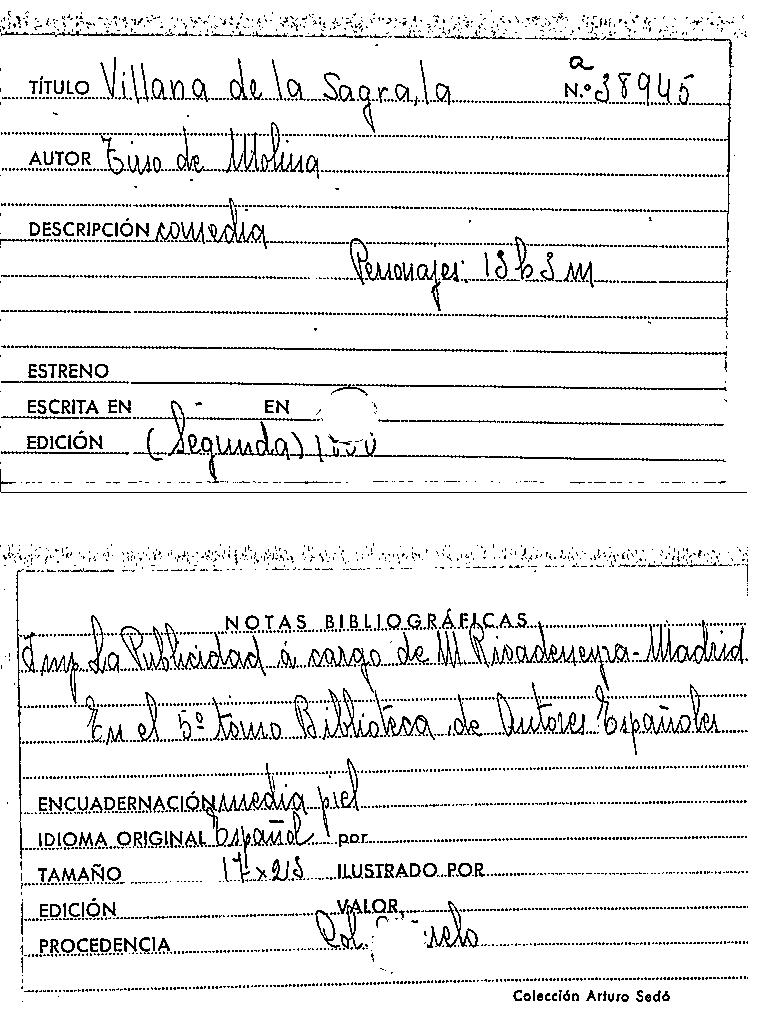 a
TÍTULO Villana de la Sagra, la N.º 38945
AUTOR Tirso de Molina
DESCRIPCIÓN comedia
Personajes: 13 h 3 m
ESTRENO
ESCRITA EN - EN
EDICIÓN (Segunda)
NOTAS BIBLIOGRÁFICAS
Imp La Publicidad á cargo de M Rivadeneyra - Madrid
En el 5º tomo Biblioteca de Autores Españoles
ENCUADERNACIÓN media piel
IDIOMA ORIGINAL Español por
TAMAÑO ILUSTRADO POR
EDICIÓN VALOR
PROCEDENCIA Col.
Colección Arturo Sedó